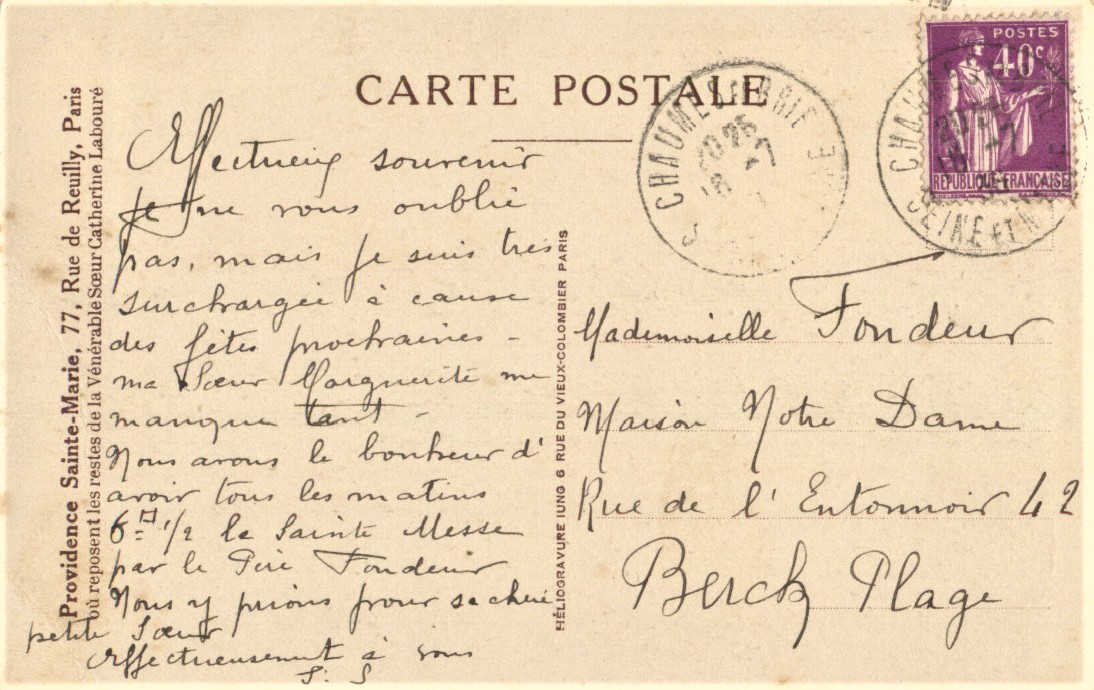 CARTE POSTALE
Providence Sainte-Marie, 77, Rue de Reuilly, Paris
où reposent les restes de la Vénérable Sœur Catherine Labouré
Affectueux souvenir
Je ne vous oublie
pas, mais je suis très
surchargée à cause
des fêtes prochaines -
ma Sœur Marguerite me
manque tant -
Nous avons le bonheur d'
avoir tous les matins
6 h 1/2 la Sainte Messe
par le Père Fondeur
Nous y prions pour sa chère
petite Sœur
Affectueusement à vous
S. S
HÉLIOGRAVURE IUNG 6 RUE DU VIEUX-COLOMBIER PARIS
POSTES
40c
RÉPUBLIQUE-FRANÇAISE
CHAUMES EN BRIE
20 25
CHAUMES
SEINE ET M
Mademoiselle Fondeur
Maison Notre Dame
Rue de l'Entonnoir 42
Berck Plage